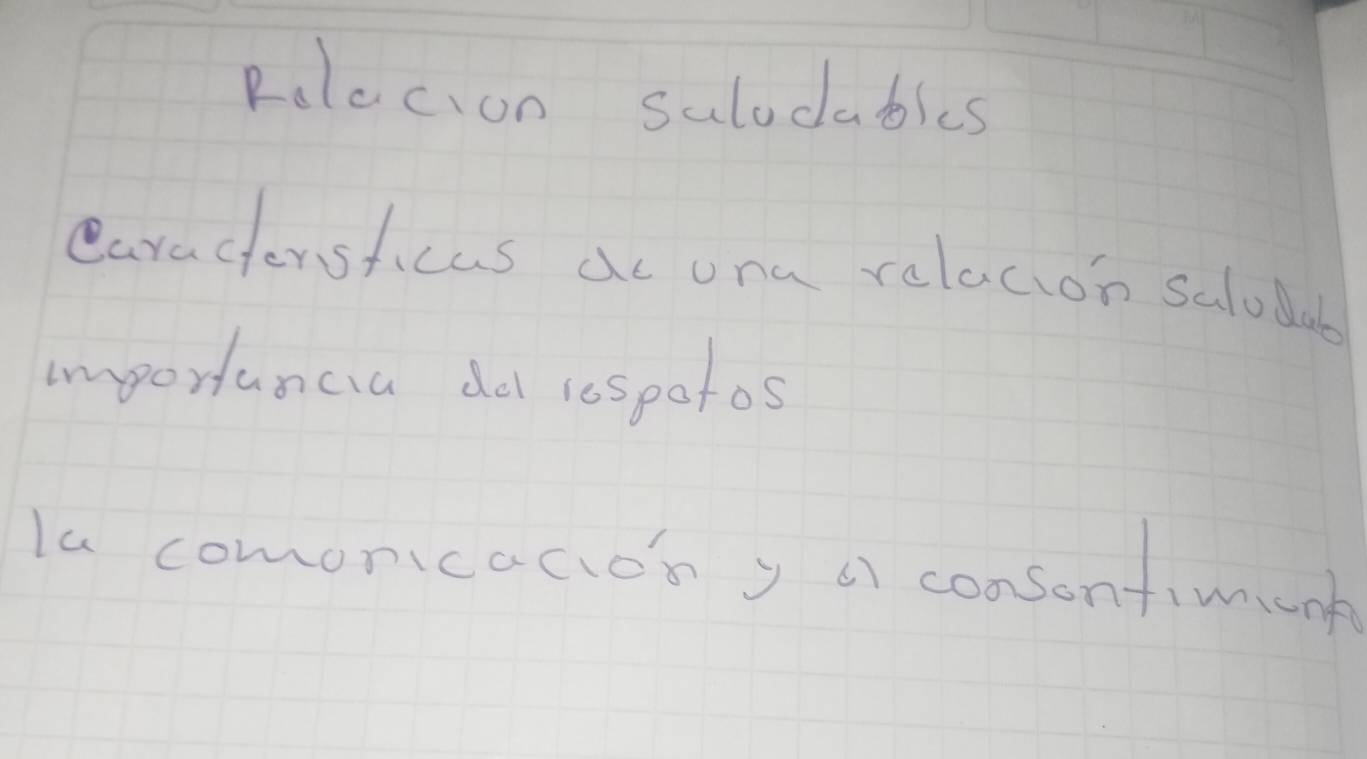 Relacion saludables
Caracteristicas de una relación saludab
importancia del respetos
la comonicación y el consentimiento